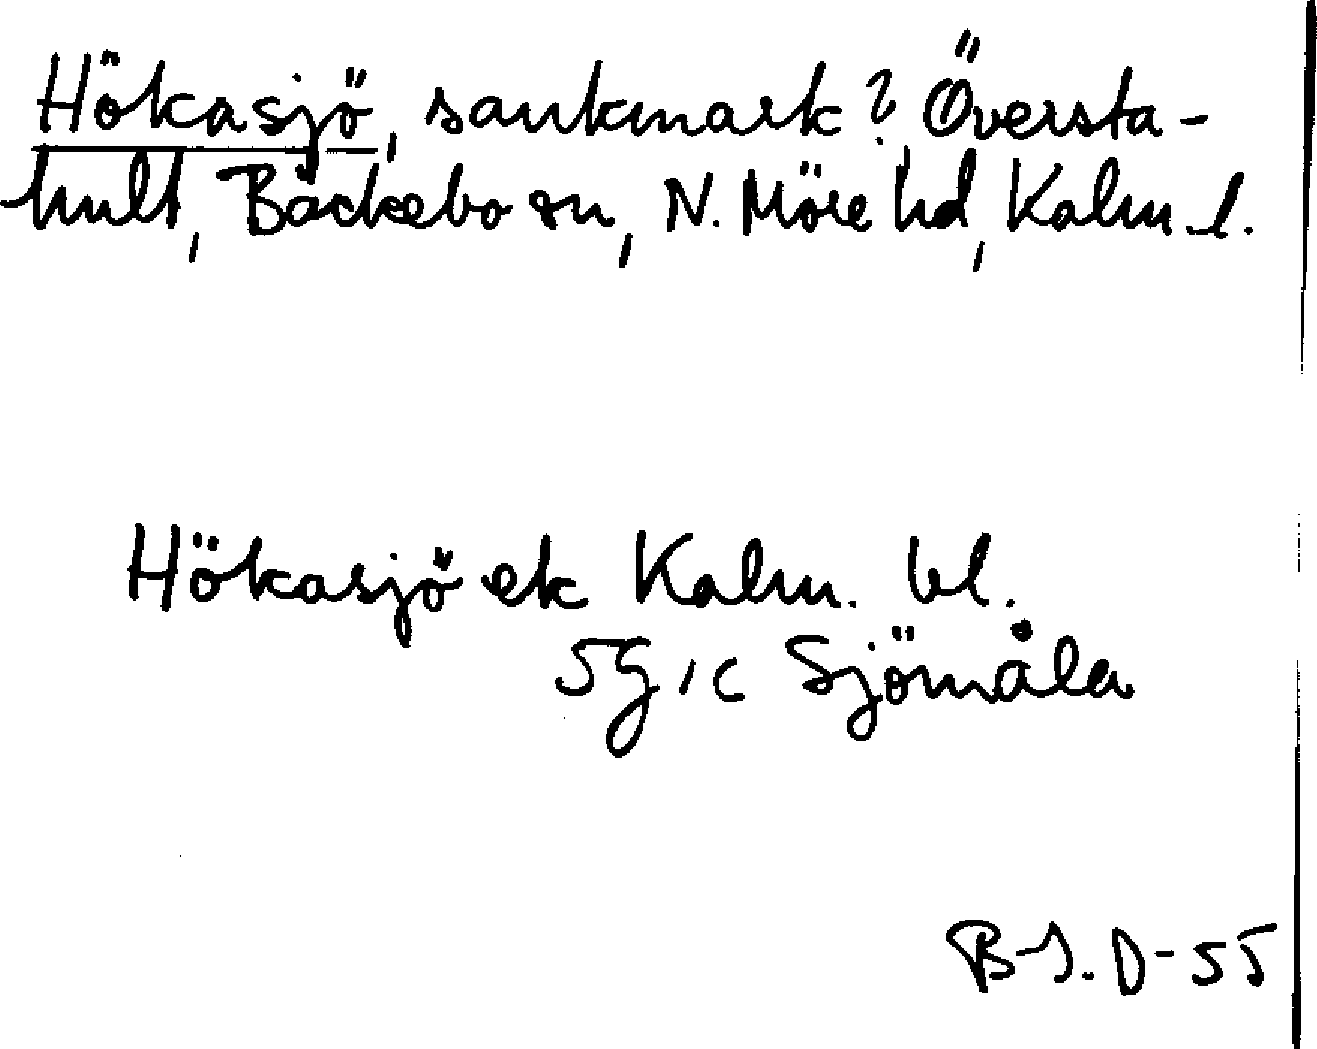 Hökasjö, sankmark? Översta-
hult, Bäckebo sn, N. Möre hd, Kalm. l.
Hökasjö ek Kalm. bl.
5g, c Sjömåla
B-S. D-55